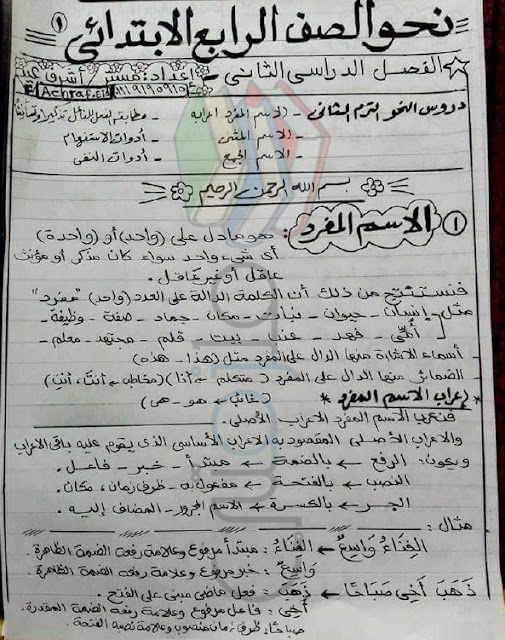 نحو الصف الرابع الابتدائى ①
الفصل الدراسى الثانى - إعداد: مستر / أشرف عيد
Achraf.Eid
دروس النحو الترم الثانى - الاسم المفرد إعرابه - مطابقة الفعل للفاعل تذكيرا وتأنيثا
- الاسم المثنى - أدوات الاستفهام
- الاسم الجمع - أدوات النفى
بسم الله الرحمن الرحيم
① الاسم المفرد: هو ما دل على (واحد) أو (واحدة)
أى شىء واحد سواء كان مذكر أو مؤنث
عاقل أو غير عاقل.
فنستنتج من ذلك أن الكلمة الدالة على العدد (واحد) "مفرد"
مثل - إنسان - حيوان - نبات - مكان - جماد - صفة - وظيفة -
أمى - فهد - عنب - بيت - قلم - مجتهد - معلم -
- أسماء الإشارة منها الدال على المفرد مثل (هذا - هذه)
الضمائر منها الدال على المفرد (متكلم ← أنا) (مخاطب ← أنتَ، أنتِ)
(غائب ← هو - هى)
* إعراب الاسم المفرد *
فنعرب الاسم المفرد الإعراب الأصلى.
والإعراب الأصلى المقصود به الإعراب الأساسى الذى يقوم عليه باقى الإعراب
ويكون: الرفع ← بالضمة ← مبتدأ - خبر - فاعل.
النصب ← بالفتحة ← مفعول به - ظرف زمان، مكان.
الجر ← بالكسرة ← الاسم المجرور - المضاف إليه.
مثال:
الفِنَاءُ وَاسِعٌ ← الفِنَاءُ: مبتدأ مرفوع وعلامة رفعه الضمة الظاهرة.
وَاسِعٌ: خبر مرفوع وعلامة رفعه الضمة الظاهرة.
ذَهَبَ أَخِى صَبَاحًا ← ذَهَبَ: فعل ماضى مبنى على الفتح.
أَخِى: فاعل مرفوع وعلامة رفعه الضمة المقدرة.
صباحًا: ظرف زمان منصوب وعلامة نصبه الفتحة.